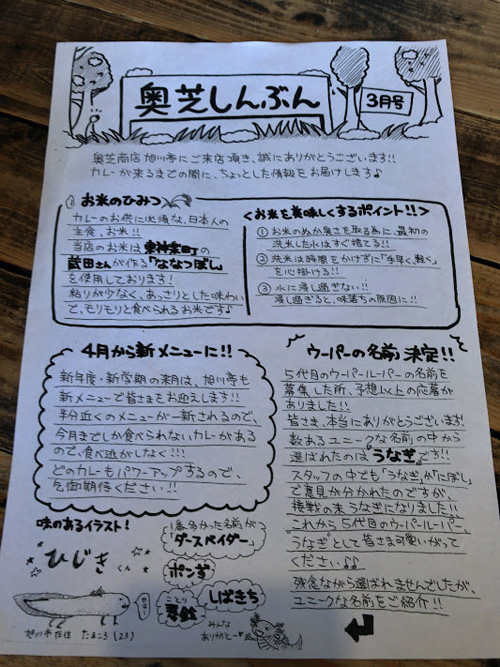 奥芝しんぶん
3月号
奥芝商店 旭川亭にご来店頂き、誠にありがとうございます!!
カレーが来るまでの間に、ちょっとした情報をお届けします♪
お米のひみつ
カレーのお供に必須な、日本人の
主食、お米!!
当店のお米は東神楽町の
武田さんが作る「ななつぼし」
を使用しております!
粘りが少なく、あっさりとした味わい
で、モリモリと食べられるお米です♪
<お米を美味しくするポイント!!>
①お米のぬか臭さを取る為に、最初の
洗米した水はすぐ捨てる!!
②洗米は時間をかけずに「手早く、軽く」
を心掛ける!!
③水に浸し過ぎない!!
浸し過ぎると、味落ちの原因に!!
4月から新メニューに!!
新年度・新学期の来月は、旭川亭も
新メニューで皆さまをお迎えします!!
半分近くのメニューが一新されるので、
今月までしか食べられないカレーがある
ので、食べ逃しなく!!!
どのカレーもパワーアップするので、
乞御期待ください!!
ウーパーの名前、決定!!
5代目のウーパールーパーの名前を
募集した所、予想以上の応募が
ありました!!
皆さま、本当にありがとうございます!
数あるユニークな名前の中から
選ばれたのは「うなぎ」です!!
スタッフの中でも「うなぎ」か「にぼし」
で意見が分かれたのですが、
接戦の末うなぎになりました!!
これから5代目のウーパールーパー、
"うなぎ"として皆さま可愛いがって
ください♪♪
残念ながら選ばれませんでしたが、
ユニークな名前をご紹介!!
味のあるイラスト!
ひじきくん
旭川市在住 たまころ(23)
1番多かった名前が
「ダースベイダー」
ポンず
しばきち
ことり
みんな
ありがとー